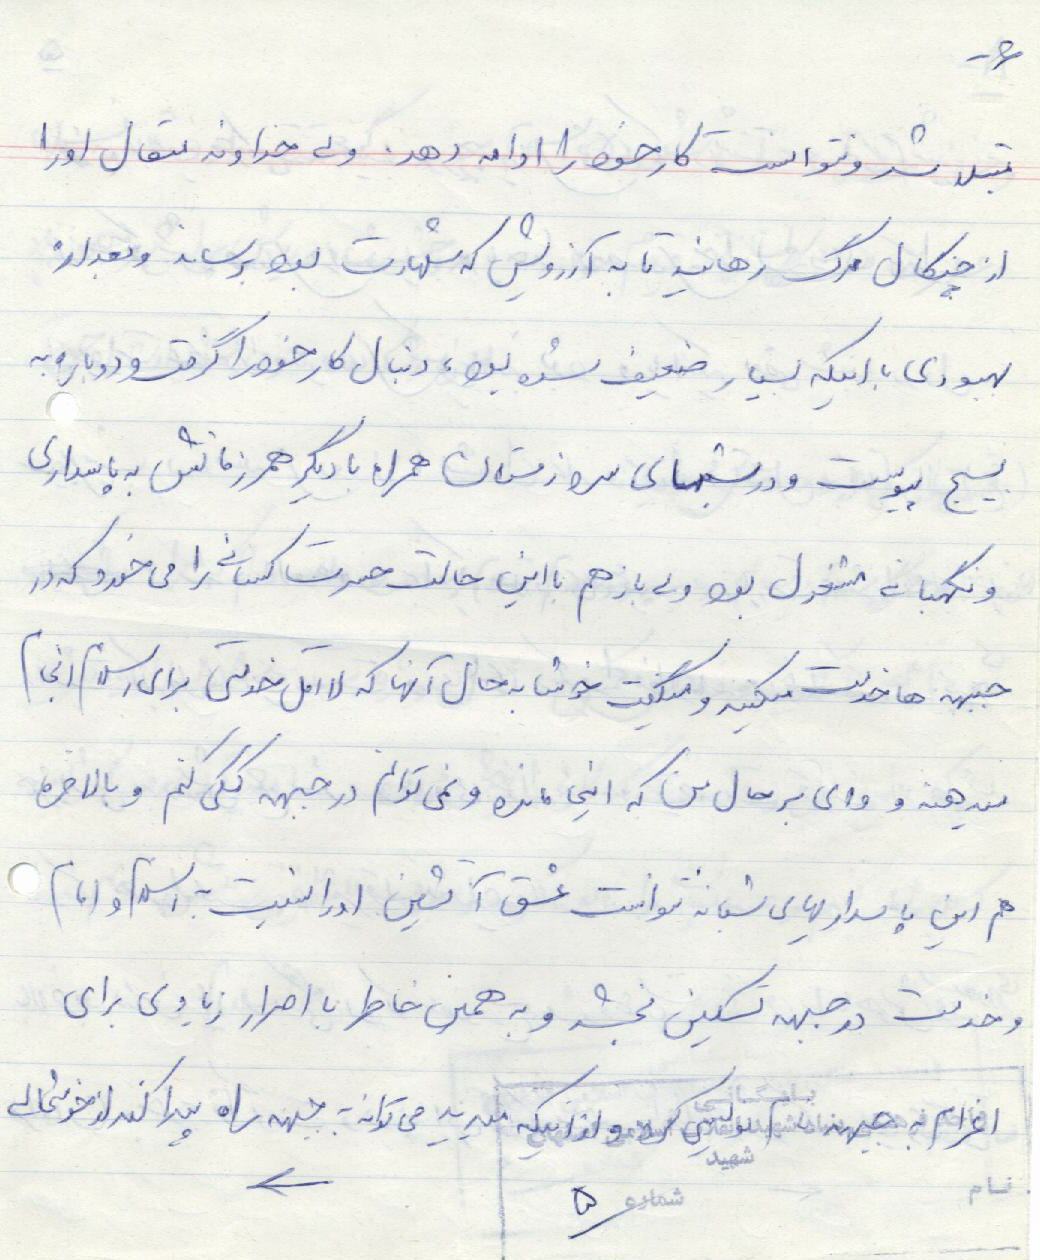 ۶-
مبتلا شد و نتوانست کار خود را ادامه دهد. ولی خداوند متعال او را
از چنگال مرگ رهانید تا به آرزویش که شهادت بود برساند و بعد از
بهبودی با اینکه بسیار ضعیف شده بود، دنبال کار خود را گرفت و دوباره به
بسیج پیوست و در شبهای سرد زمستان همراه با دیگر همرزمانش به پاسداری
و نگهبانی مشغول بود ولی باز هم با این حالت حسرت کسانی را می خورد که در
جبهه ها خدمت میکنند و میگفت خوشا به حال آنها که لااقل خدمتی برای اسلام انجام
میدهند و وای بر حال من که اینجا مانده و نمی توانم در جبهه کمکی کنم و بالاخره
هم این پاسداریهای شبانه نتوانست عشق آتشین او را نسبت به اسلام و امام
و خدمت در جبهه تسکین بخشد و به همین خاطر با اصرار زیادی برای
اعزام به جبهه نام نویسی کرد و از اینکه میدید می تواند به جبهه راه پیدا کند از خوشحالی
شهید
نام
شماره ۵